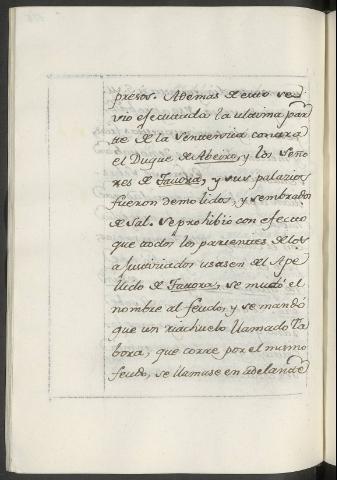 presos. Ademas de esto se
vio efectuada la ultima par
te de la sentencia contra
el Duque de Abeiro, y los Seño
res de Tavora, y sus palacios
fueron demolidos, y sembrados
de sal. Se prohibio con efecto
que todos los parientes de los
ajusticiados usasen del Ape
llido de Tavora, se mudó el
nombre al feudo, y se mandó
que un riachuelo llamado Ta
bora, que corre por el mismo
feudo, se llamase en adelante